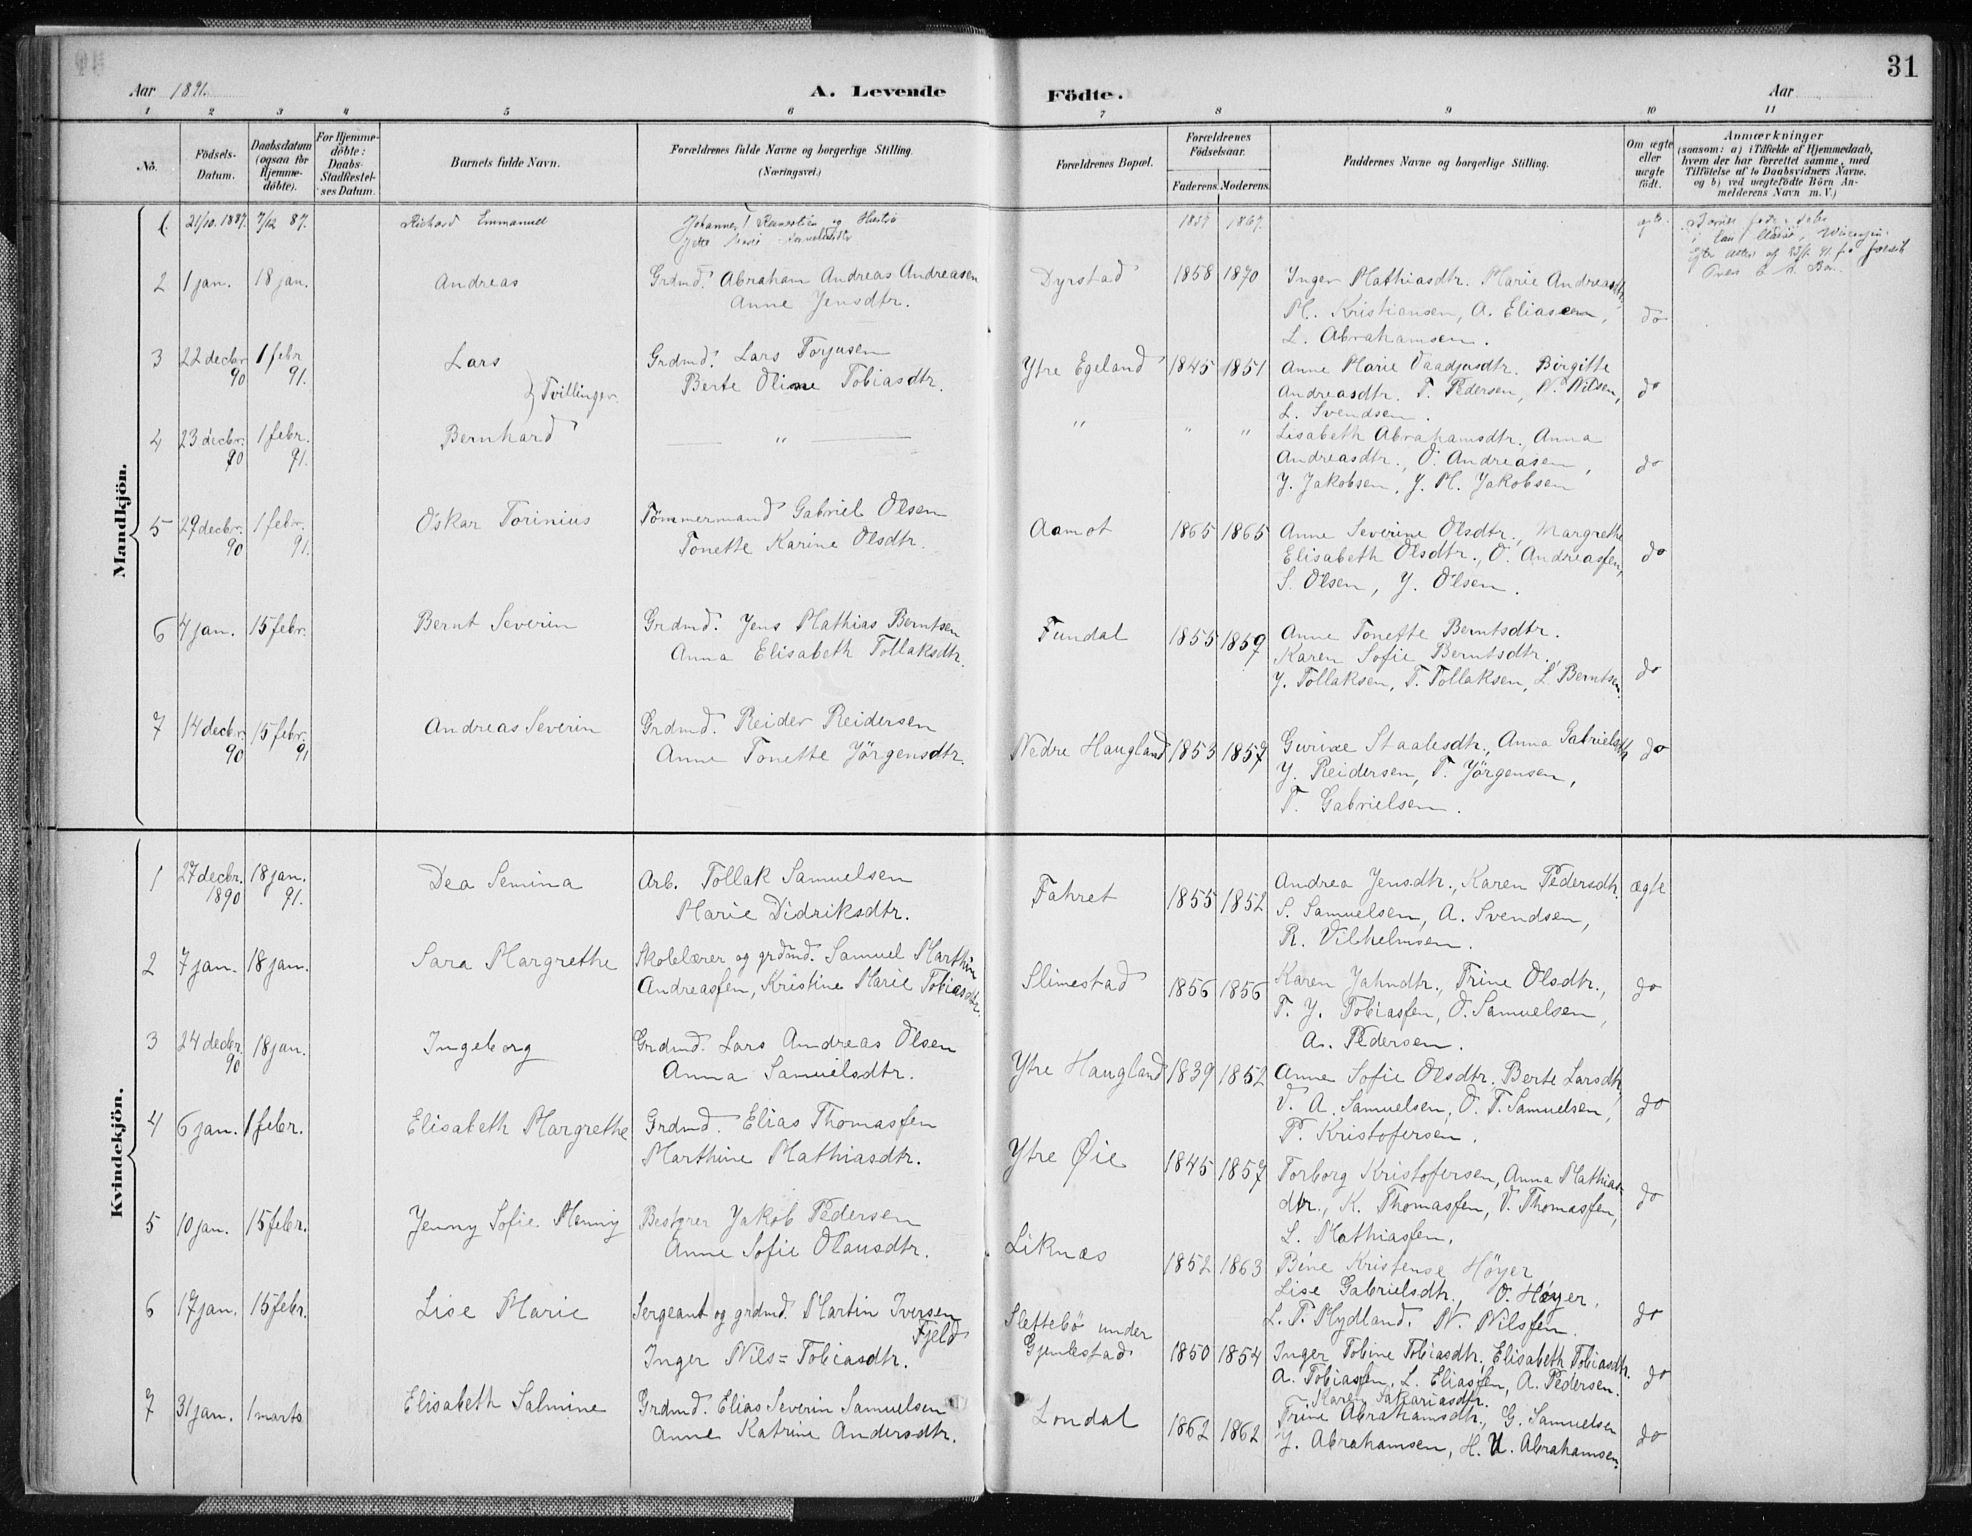 31
Aar 1891.
A. Levende Födte.
Aar
1 2 3 4 5 6 7 8 9 10 11
No.
Födsels-Datum.
Daabsdatum (ogsaa for Hjemme-döbte).
For Hjemme-döbte: Daabs-Stadfæstel-ses Datum.
Barnets fulde Navn.
Forældrenes fulde Navne og borgerlige Stilling. (Næringsvei.)
Forældrenes Bopæl.
Forældrenes Födselsaar.
Faderens. Moderens.
Faddernes Navne og borgerlige Stilling.
Om ægte eller uægte födt.
Anmærkninger
(saasom: a) i Tilfælde af Hjemmedaab,
hvem der har forrettet samme, med
Tilföielse af to Daabsvidners Navne.
og b) ved uægtefödte Börn An-
melderens Navn m. V.)
Mandkjön.
1. 21/10. 1887. 7/12 87. Richard Emmanuel Johannes og Hustru
1867.
2 1 jan. 18 jan. Andreas Grdmd. Abraham Andreas Andreasen Dyrstad 1858 1870 Inger Mathiasdtr. Marie Andreasdtr.
Anne Jensdtr. M. Kristiansen, A. Eliasen, do
L. Abrahamsen.
3 22 decbr. 1 febr. Lars Grdmd. Lars Torjusen Ytre Egeland 1845 1851 Anne Marie Vaadjusdtr. Birgitte
90 91. } Tvillinger. Berte Oline Tobiasdtr. Andreasdtr. T. Pedersen, N. Nilsen, do
L. Svendsen.
4 23 decbr. 1 febr. Bernhard " " " " Lisabeth Abrahamsdtr., Anna
90 91. Andreasdtr., O. Andreasen, do
J. Jakobsen, J. M. Jakobsen
5 29 decbr. 1 febr. Oskar Torinius Tömmermand Gabriel Olsen Aamot 1865 1865 Anne Severine Olsdtr., Margrethe
90 91. Tonette Karine Olsdtr. Elisabeth Olsdtr., O. Andreassen, do
S. Olsen, J. Olsen.
6 4 jan. 15 febr. Bernt Severin Grdmd. Jens Mathias Berntsen Fundal 1855 1859 Anne Tonette Berntsdtr.
Anna Elisabeth Tollaksdtr. Karen Sofie Berntsdtr.
J. Tollaksen, T. Tollaksen, L. Berntsen. do
7 14 decbr. 15 febr. Andreas Severin Grdmd. Reider Reidersen Nedre Haugland 1853 1857 Gurine Staalesdtr., Anna Gabrielsdtr do
90 91 Anne Tonette Jörgensdtr. J. Reidersen, T. Jörgensen,
T. Gabrielsen.
Kvindekjön.
1 27 decbr. 18 jan. Dea Semina Arb. Tollak Samuelsen Fahret 1855 1852 Andrea Jensdtr., Karen Pedersdtr. ægte
1890 91. Marie Didriksdtr. S. Samuelsen, A. Svendsen,
R. Vilhelmsen.
2 7 jan. 18 jan. Sara Margrethe Skolelærer og grdmd. Samuel Marthin Slimestad 1856 1856 Karen Jahndtr., Trine Olsdtr., do
Andreassen, Kristine Marie Tobiasdtr. T. J. Tobiassen, O. Samuelsen,
A. Pedersen.
3 24 decbr. 18 jan. Ingeborg Grdmd. Lars Andreas Olsen Ytre Haugland 1839 1852 Anne Sofie Olsdtr., Berte Larsdtr,
90 Anna Samuelsdtr. V. A. Samuelsen, O. T. Samuelsen, do
P. Kristofersen.
4 6 jan. 1 febr. Elisabeth Margrethe Grdmd. Elias Thomassen Ytre Øie 1845 1857 Torborg Kristofersen, Anna Mathias-
Marthine Mathiasdtr. dtr., K. Thomassen, V. Thomassen, do
L. Mathiassen.
5 10 jan. 15 febr. Jenny Sofie Henny Bestyrer Jakob Pedersen Liknæs 1852 1863 Bine Kristense Høyer
Anne Sofie Olausdtr. Lise Gabrielsdtr., O. Høyer,
L. P. Mydland. N. Nilssen. do
6 17 jan. 15 febr. Lise Marie Sergeant og grdmd. Martin Iversen Fjeld Slettebö under Gjemlestad 1850 1854 Inger Tobine Tobiasdtr., Elisabeth Tobiasdtr.
Inger Nils=Tobiasdtr. A. Tobiassen, L. Eliassen, A. Pedersen. do
7 31 jan. 1 marts Elisabeth Salmine Grdmd. Elias Severin Samuelsen Londal 1862 1862 Karen Sakariasdtr.
Anne Katrine Andersdtr. Trine Abrahamsdtr., G. Samuelsen
J. Abrahamsen, H. U. Abrahamsen. do